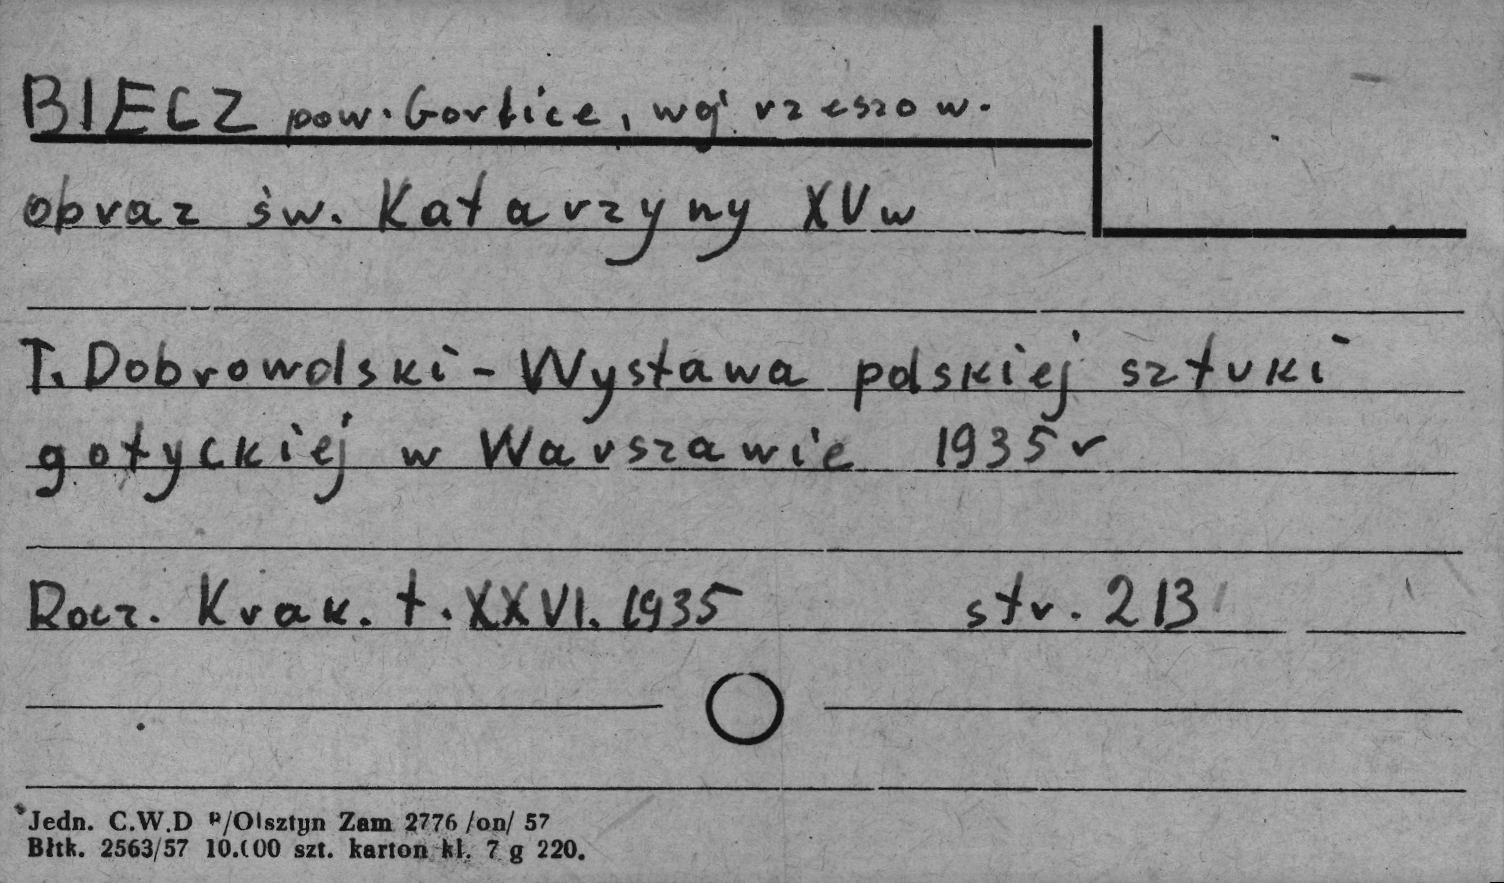 BIECZ pow. Gorlice, woj. rzeszow.
obraz św. Katarzyny XV w
T. Dobrowolski - Wystawa polskiej sztuki
gotyckiej w Warszawie 1935 r
Rocz. Krak. t. XXVI. 1935 str. 213
Jedn. C.W.D P/Olsztyn Zam 2776 /on/ 57
Błtk. 2563/57 10.000 szt. karton kl. 7 g 220.